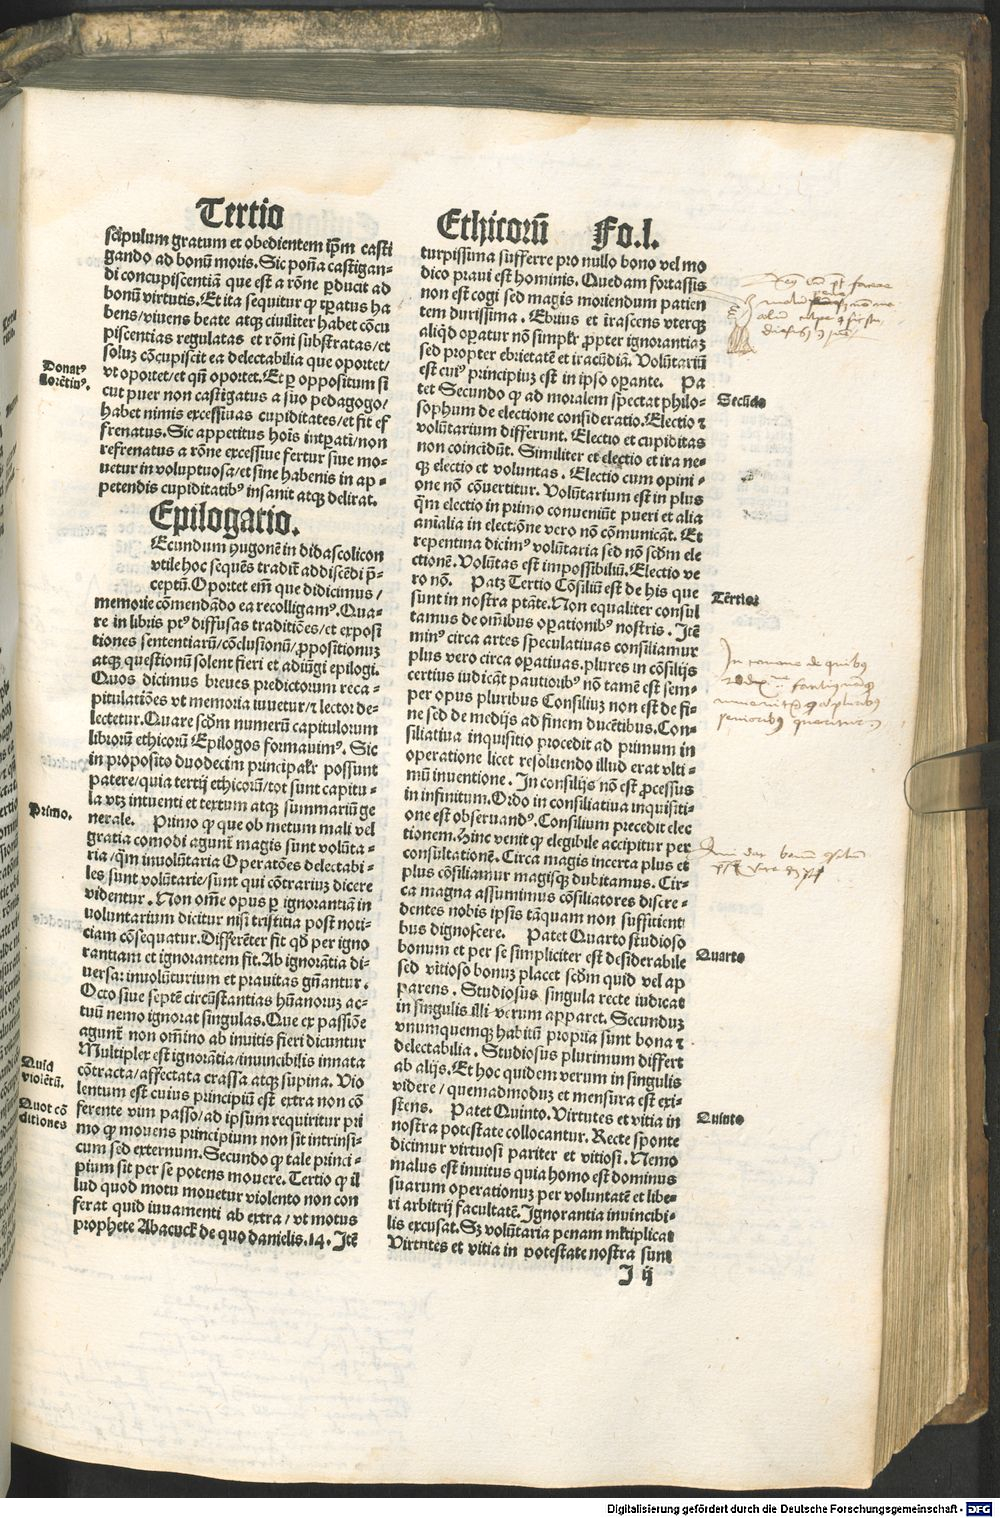 Tertio
scipulum gratum et obedientem ip̄m casti
gando ad bonū moris. Sic poñа castigan-
di concupiscentiā que est a rōne ꝑducit ad
bonū virtutis. Et ita sequitur ꝙ tꝑatus ha
bens/viuens beate atqꝫ ciuiliter habet cōcu
piscentias regulatas et rōni substratas/et
soluꝫ cōcupiscit ea delectabilia que oportet/
vt oportet/et qn̄ oportet. Et ꝑ oppositum si
cut puer non castigatus a suo pedagogo/
habet nimis excessiuas cupiditates/et fit ef
frenatus. Sic appetitus hoīs intꝑati/non
refrenatus a rōne excessiue fertur siue mo-
uetur in voluptuosa/et sine habenis in ap-
petendis cupiditatibꝰ insanit atqꝫ delirat.
Donatꝰ
florētinꝰ.
Epilogatio.
Ecundum yugonē in didascolicon
vtile hoc sequēs tradit̄ addiscēdi p̄-
ceptū. Oportet em̄ que didicimus/
memorie cōmendādo ea recolligamꝰ. Qua-
re in libris ptꝰ diffusas traditiōes/et exposi
tiones sententiarū/cōclusionū/ꝓpositionuꝫ
atqꝫ questionū solent fieri et adiūgi epilogi.
Quos dicimus breues predictorum reca-
pitulatiōes vt memoria iuuetur/⁊ lector de-
lectetur. Quare scd̄m numerū capitulorum
librorū ethicorū Epilogos formauimꝰ. Sic
in proposito duodecim principalr̄ possunt
patere/quia tertij ethicorū/tot sunt capitu-
la vtꝫ intuenti et textum atqꝫ summariū ge
nerale. Primo ꝙ que ob metum mali vel
gratia comodi agunt̄ magis sunt volūta-
ria/qm̄ inuolūtaria Operatōes delectabi-
les sunt voluntarie/sunt qui cōtrariuꝫ dicere
videntur. Non om̄e opus ꝑ ignorantiā in
uoluntarium dicitur nisi tristitia post noti-
ciam cōsequatur. Differēter fit qd̄ per igno
rantiam et ignorantem fit. Ab ignorātia di-
uersa: inuolūturium et prauitas gn̄antur.
Octo siue septē circūstantias hūanoruꝫ ac-
tuū nemo ignorat singulas. Que ex passiōe
agunt̄ non om̄ino ab inuitis fieri dicuntur
Multiplex est ignorātia/inuincibilis innata
cōtracta/affectata crassa atqꝫ supina. Vio
lentum est cuius principiū est extra non cō
ferente vim passo/ad ipsum requiritur pri
mo ꝙ mouens principium non sit intrinsi-
cum sed externum. Secundo ꝙ tale princi-
pium sit per se potens mouere. Tertio ꝙ il
lud quod motu mouetur violento non con
ferat quid iuuamenti ab extra/vt motus
prophete Abacuck de quo danielis.14. Itē
Primo.
Quid
violētū.
Quot cō
ditiones
Ethicorū Fo.l.
turpissima sufferre pro nullo bono vel mo
dico praui est hominis. Quedam fortassis
non est cogi sed magis moriendum patien
tem durissima. Ebrius et irascens vterqꝫ
aliqd operatur nō simplr̄ ꝓpter ignorantiaꝫ
sed propter ebrietatē et iracūdiā. Volūtariū
est cuiꝰ principiuꝫ est in ipso oꝑante. Pa
tet Secundo ꝙ ad moralem spectat philo-
sophum de electione consideratio. Electio ⁊
volūtarium differunt. Electio et cupiditas
non coincidūt. Similiter et electio et ira ne-
qꝫ electio et voluntas. Electio cum opini-
one nō cōuertitur. Volūtarium est in plus
qm̄ electio in primo conueniūt pueri et alia
aīalia in electiōne vero nō cōmunicāt. Et
repentina dicimꝰ volūtaria sed nō scd̄m ele
ctionē. Volūtas est impossibiliū. Electio ve
ro nō. Patꝫ Tertio Cōsiliū est de his que
sunt in nostra ptāte. Non equaliter consul
tamus de om̄ibus oꝑationibꝰ nostris. Itē
minꝰ circa artes speculatiuas consiliamur
plus vero circa oꝑatiuas. plures in cōsilijs
certius iudicāt pautioribꝰ nō tamē est sem-
per opus pluribus Consiliuꝫ non est de fi-
ne sed de medijs ad finem ducētibus. Con-
siliatiua inquisitio procedit ad primum in
operatione licet resoluendo illud erat vlti-
mū inuentione. In consilijs nō est ꝓcessus
in infinitum. Ordo in consiliatiua inquisiti-
one est obseruandꝰ. Consilium precedit elec
tionem. Hinc venit ꝙ elegibile accipitur per
consultationē. Circa magis incerta plus et
plus cōsiliamur magisqꝫ dubitamus. Cir-
ca magna assumimus cōsiliatores discre-
dentes nobis ipsis tāquam non suffitienti
bus dignoscere. Patet Quarto studioso
bonum et per se simpliciter est desiderabile
sed vitioso bonuꝫ placet scd̄m quid vel ap
parens. Studiosus singula recte iudicat
in singulis illi verum apparet. Secunduꝫ
vnumquemqꝫ habitū propria sunt bona ⁊
delectabilia. Studiosus plurimum differt
ab alijs. Et hoc quidem verum in singulis
videre/quemadmoduꝫ et mensura est exi-
stens. Patet Quinto. Virtutes et vitia in
nostra potestate collocantur. Recte sponte
dicimur virtuosi pariter et vitiosi. Nemo
malus est inuitus quia homo est dominus
suarum operationuꝫ per voluntatē et libe-
ri arbitrij facultatē. Ignorantia inuincibi-
lis excusat. Sꝫ volūtaria penam mltiplicat
Virtutes et vitia in potestate nostra sunt
I ij
Secūdo
Tertio:
Quarto
Quinto
In
de quibus
Digitalisierung gefördert durch die Deutsche Forschungsgemeinschaft - DFG